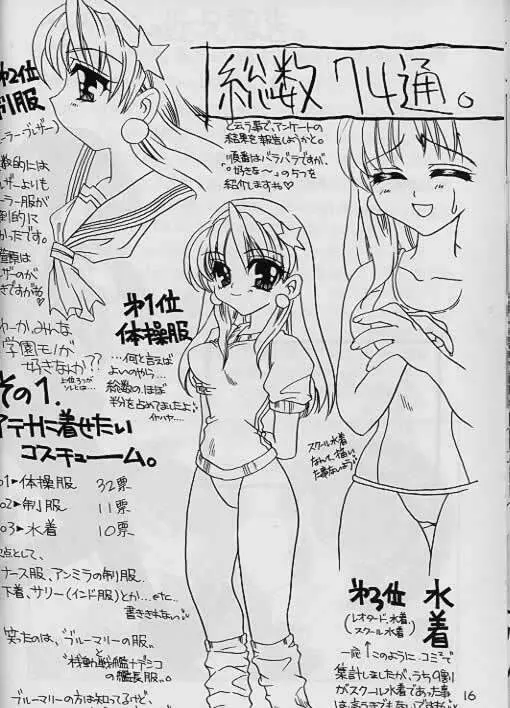 総数 74通。
と云う事で、アンケートの
結果を報告しようかと。
順番はバラバラですが、
"好きな〜"のうつを
紹介してますね♡
第2位
制服
ーラーブレザー)
数的には
ザーよりも
ーラー服が
倒的に
かったです。
ザーのが
きですがね♡
わーかみんな
学園モノが
好きなんか??
第1位
体操服
…何と言えば
よいのやら…
総数の、ほぼ
半分を占めてましたよ
その1.
アテナに着せたい
コスチューム。
01▶体操服 32票
02▶制服 11票
03▶水着 10票
次点として、
ナース服、アンミラの制服…
下着、サリー(インド服)とか…etc…
書ききれないっ
笑ったのは、"ブルーマリーの服"
と
"機動戦艦ナデシコ
の艦長服"。
ブルーマリーの方は知ってるけど、
スクール水着
なんて、描いた
事ないよう
第3位 水着
(レオタード水着、
スクール水着)
一応↑このように、コミで
集計しましたが、うち9割
がスクール水着であった事
は言うまでもないですが
16